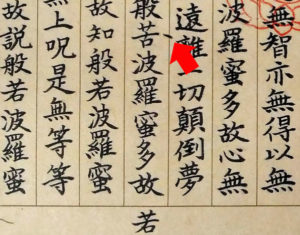 無智亦無得以無
波羅蜜多故心無
遠離一切顛倒夢
般苦波羅蜜多故
故知般若波羅蜜
無上呪是無等等
故説般若波羅蜜
若